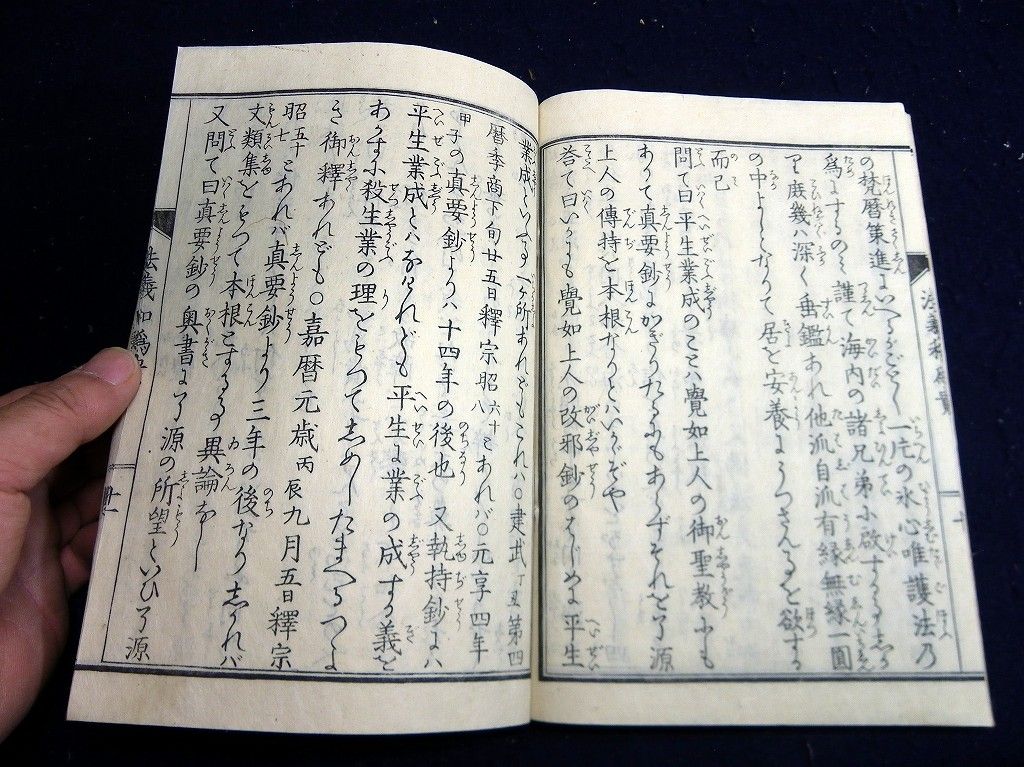 の梵暦策進よいへるがごとし一片の氷心唯護法乃
為にするのミ謹て海内の諸兄弟小啟する志かり
庶幾ハ深く垂鑑あれ他派自派有縁無縁一圓
の中よしとなりて居を安養ようつさんるを欲する
而已
問て曰平生業成のことハ覺如上人の御聖教小も
ありて真要鈔にかぎりたるにもあらずそれを了源
上人の傳持を本根なりとハいかゞぞや
答て曰いかにも覺如上人の改邪鈔のはじめに平生
業成といふる一ヶ所あれどもこれハ〇建武丁丑第四
暦季商下旬廿五日釋宗昭六十八とあれバ〇元亨四年
甲子の真要鈔よりハ十四年の後也又執持鈔にハ
平生業成とハなけれども平生に業の成する義を
あかすに殺生業の理をもつて志めしたまへるつよ
き御釋あれども〇嘉暦元歳丙辰九月五日釋宗
昭五十七とあれバ真要鈔より三年の後なり志かれバ
文類集をもつて本根とするる異論なし
又問て曰真要鈔の奥書に了源の所望といひ了源